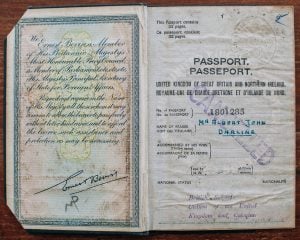 We
Ernest Bevin, a Member
of His Britannic Majesty's
Most Honourable Privy Council,
a Member of Parliament, etc. etc. etc.
His Majesty's Principal Secretary
of State for Foreign Affairs,
Request and require in the Name of
His Majesty all those whom it may
concern to allow the bearer to pass freely
without let or hindrance, and to afford
the bearer such assistance and
protection as may be necessary.
Ernest Bevin
This Passport contains
32 pages.
Ce passeport contient
32 pages.
PASSPORT.
PASSEPORT.
UNITED KINGDOM OF GREAT BRITAIN AND NORTHERN IRELAND.
ROYAUME-UNI DE GRANDE-BRETAGNE ET D'IRLANDE DU NORD.
No. of PASSPORT
No. du PASSEPORT
1801285
NAME OF BEARER
NOM DU TITULAIRE
Mr Albert John
DARLING
CANCELLED
ACCOMPANIED BY HIS WIFE
NATIONAL STATUS
NATIONALITÉ
British Subject
Citizen of the United
Kingdom and Colonies